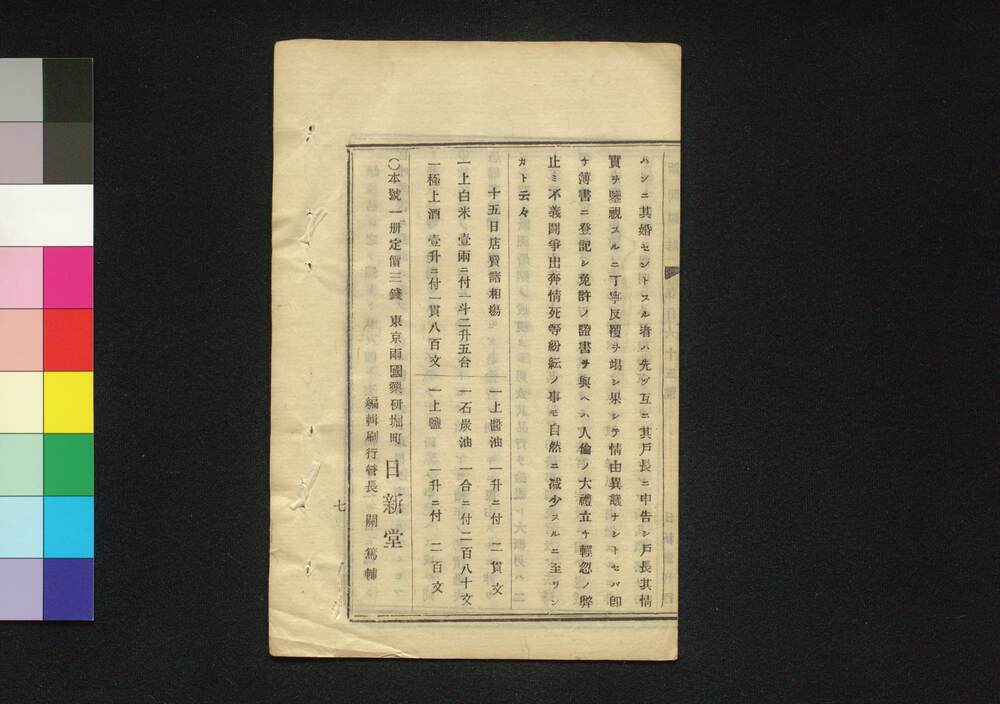 ハシニ其婚セントスル者ハ先ヅ互ニ其戸長ニ申告シ戸長其情
實ヲ鑒視スルニ丁寧反覆ヲ竭シ果シテ情由異議ナシトセバ即
チ簿書ニ登記シ免許ノ證書ヲ與ヘハ人倫ノ大禮立ヰ輕忽ノ弊
止ミ不義鬪爭出奔情死等紛紜ノ事モ自然ニ減少スルニ至リシ
カト云々
十五日店賣諸相塲
一上醬油 一升ニ付 二貫文
一上白米 壹兩ニ付一斗二升五合
一石炭油 一合ニ付二百八十文
一極上酒 壹升ニ付一貫八百文
一上鹽 一升ニ付 二百文
〇本號一册定價三錢 東京兩國藥研堀町 日新堂
編輯刷行管長 關 篤輔
七